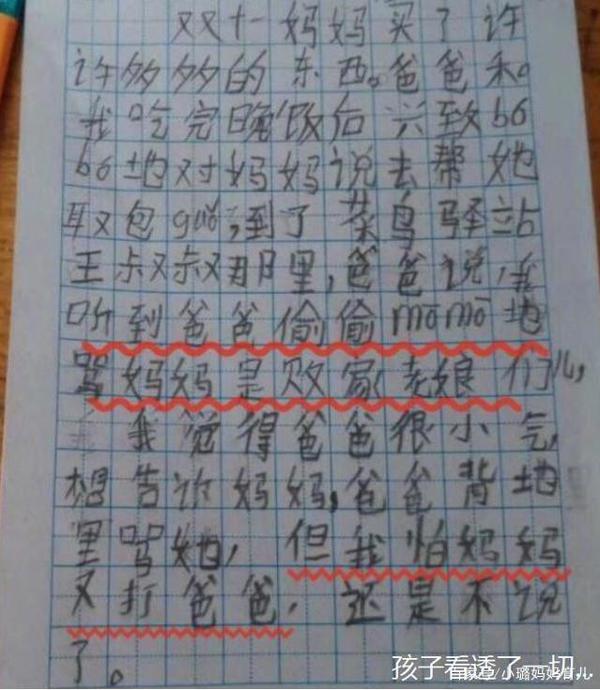 双十一妈妈买了许
许多多的东西。爸爸和
我吃完晚饭后兴致bó
bó地对妈妈说去帮她
取包guǒ,到了菜鸟驿站
王叔叔那里,爸爸说,我
听到爸爸偷偷mōmō地
骂妈妈是败家老娘们儿,
我觉得爸爸很小气,
想告诉妈妈,爸爸背地
里骂她,但我怕妈妈
又打爸爸,还是不说
了。
孩子看透了一切...
小璐妈妈育儿